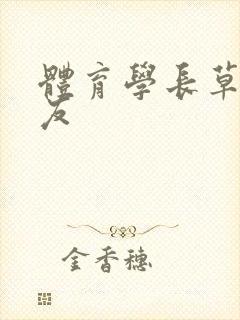 體育學長草
友
金香穗